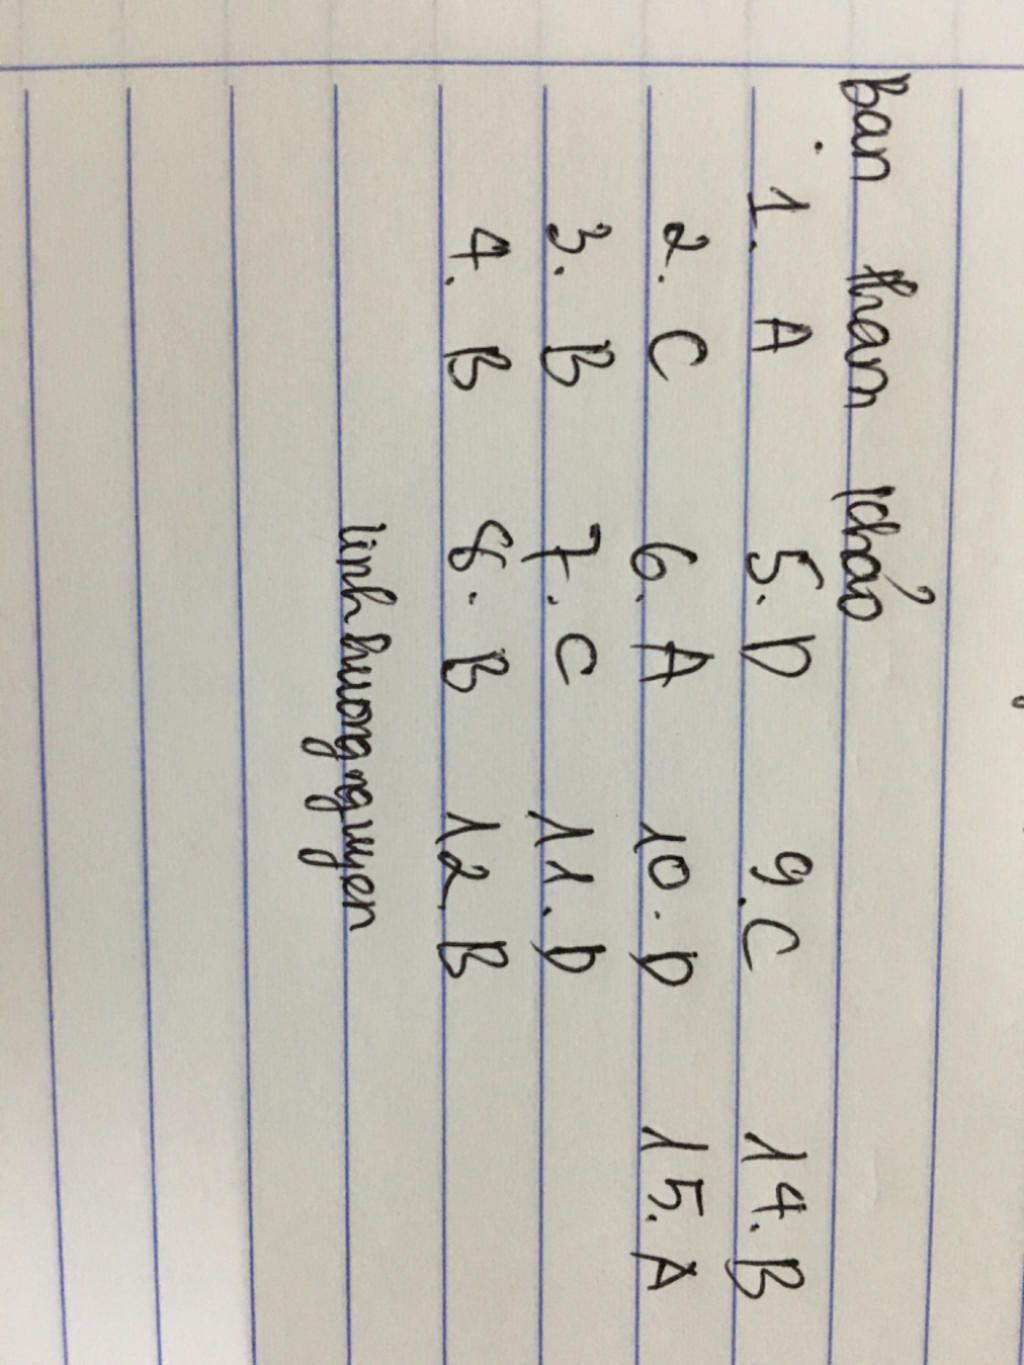 Bạn tham khảo
1. A 5. D 9. C 14. B
2. C 6. A 10. D 15. A
3. B 7. C 11. D
4. B 8. B 12. B
linhhuongnguyen